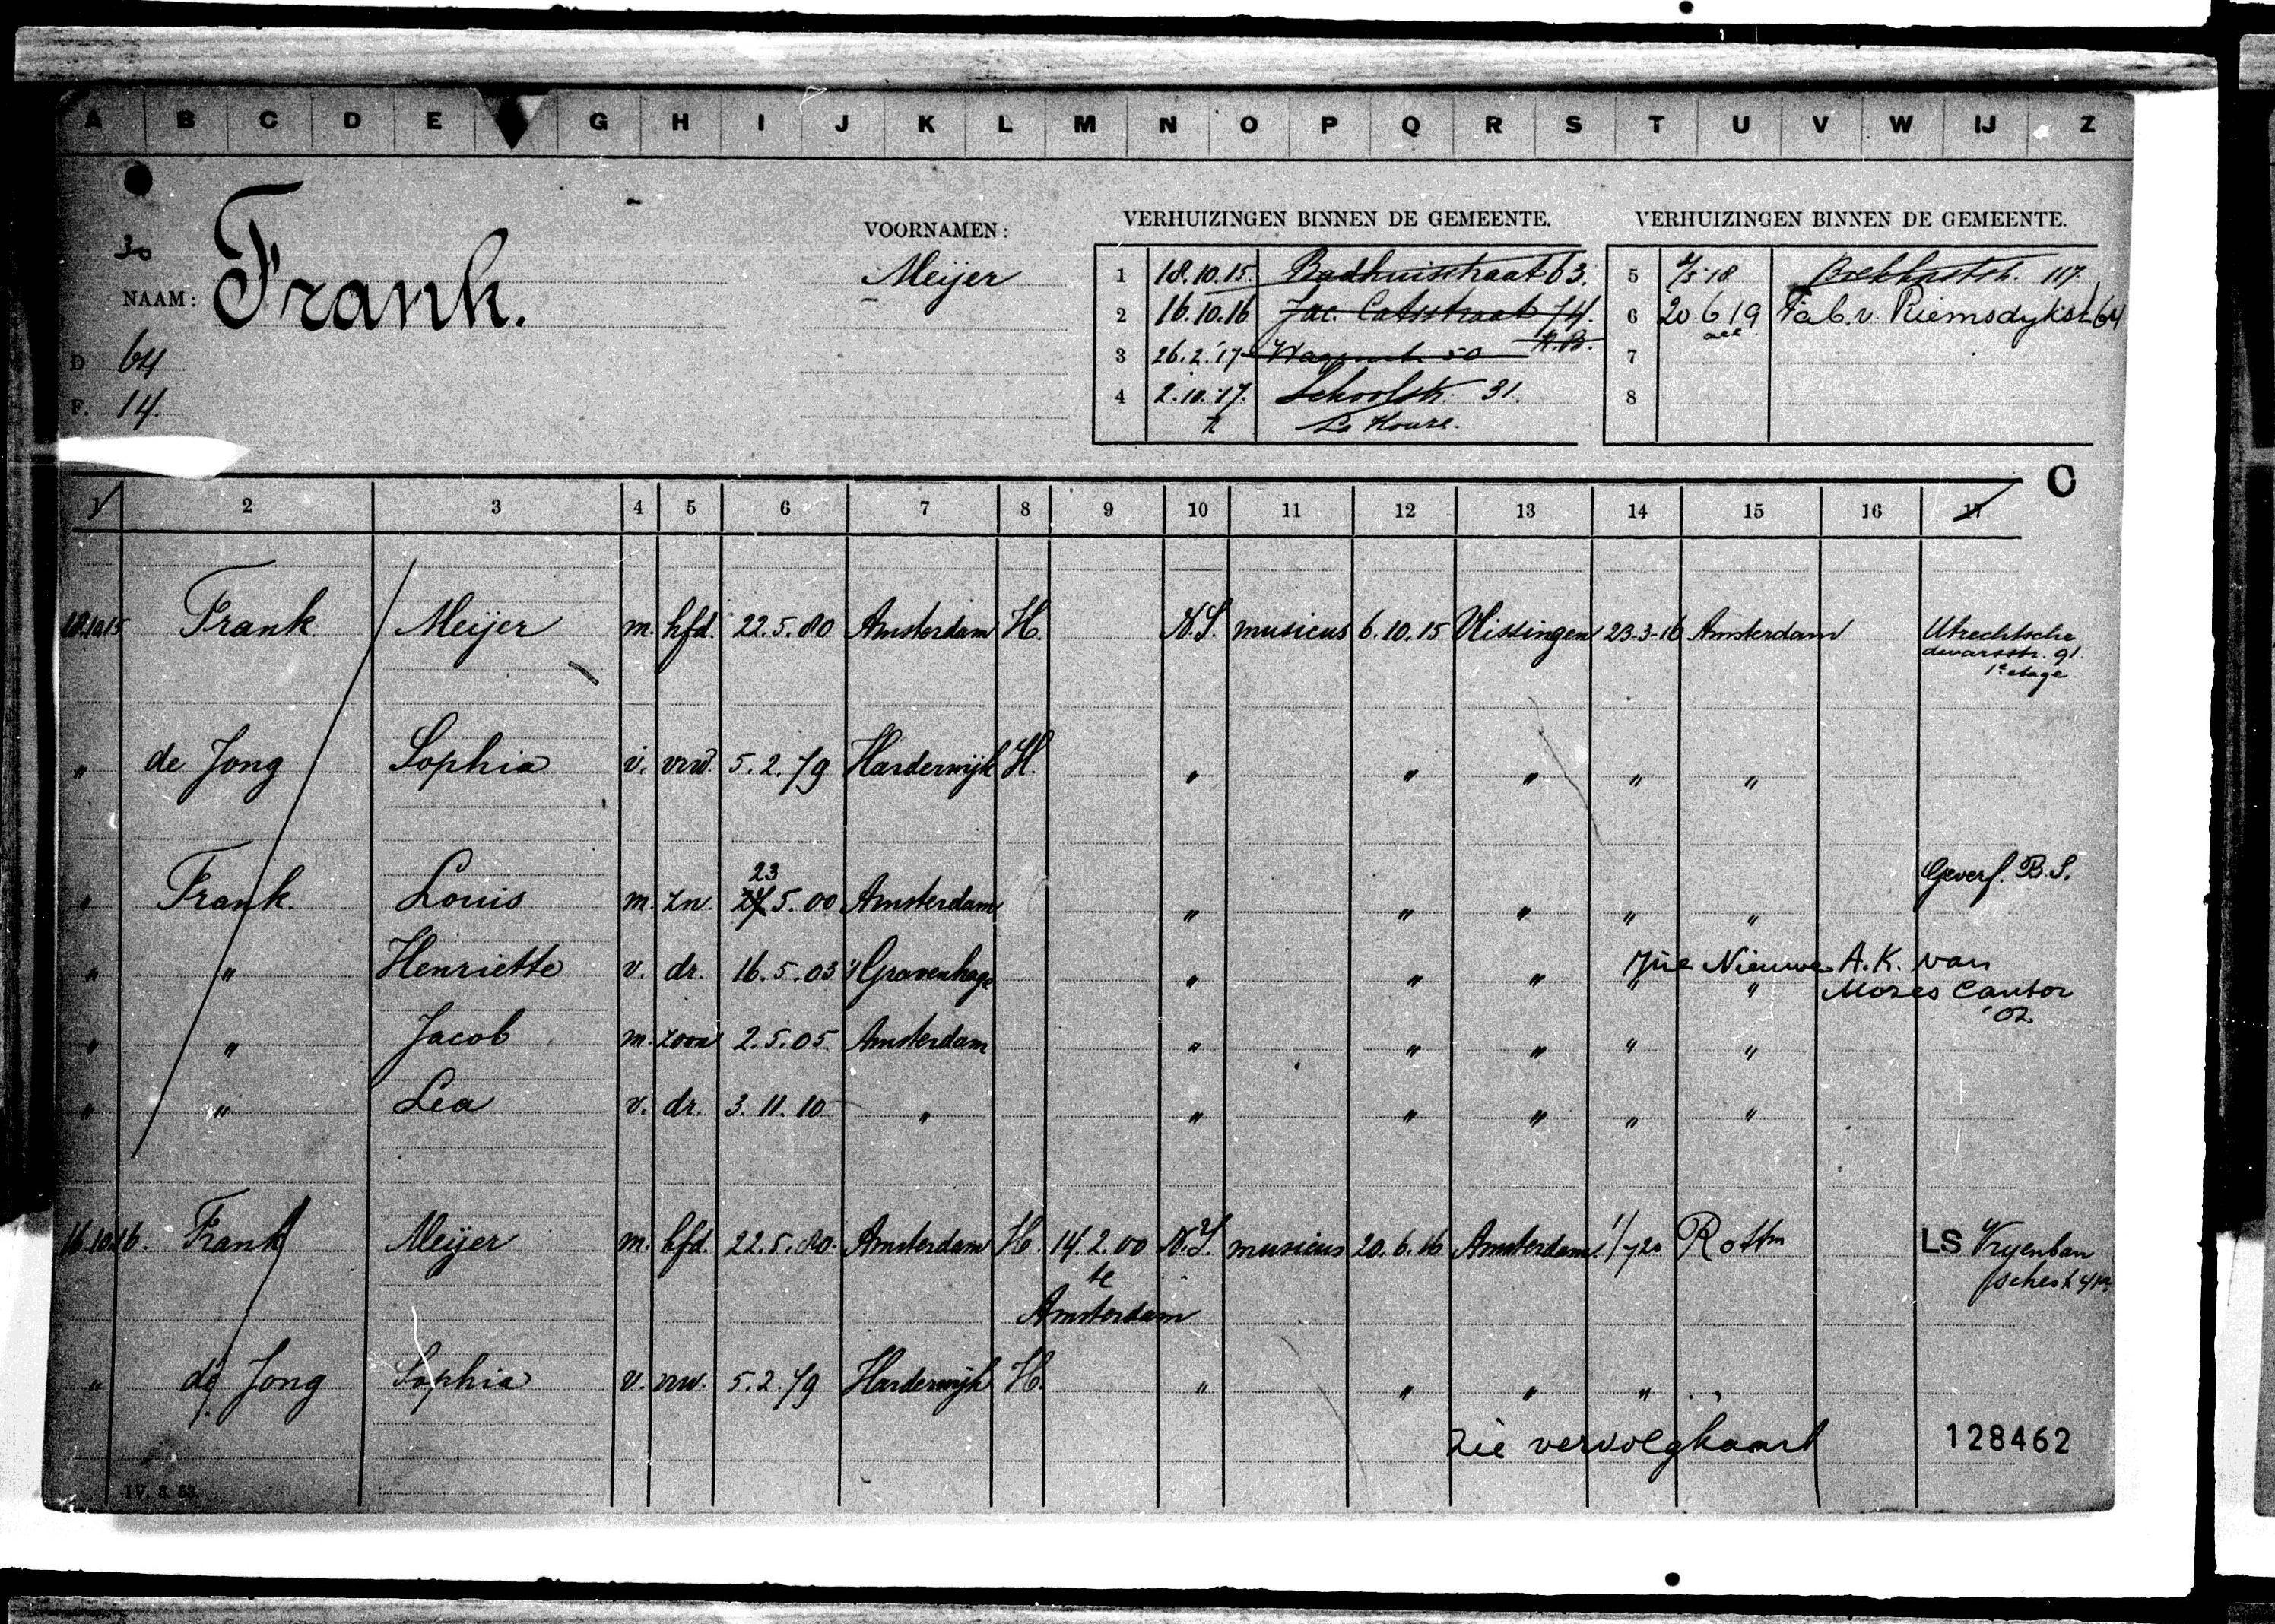 A B C D E G H I J K L M N O P Q R S T U V W IJ Z
30
NAAM: Frank.
VOORNAMEN:
Meijer
D 64
F. 14.
VERHUIZINGEN BINNEN DE GEMEENTE.
1 18.10.15. Badhuisstraat 63.
2 16.10.16 Jac. Catsstraat 74.
3 26.2.'17 50 K.B.
4 2.10.17. Schoolstr. 31.
VERHUIZINGEN BINNEN DE GEMEENTE.
5 /5 18 117.
6 20 6 19 Fab. v. Riemsdykst 64
7
8
C
1 2 3 4 5 6 7 8 9 10 11 12 13 14 15 16 17
18.10.15 Frank Meijer m. hfd. 22.5.80 Amsterdam H. N.I. musicus 6.10.15 Vlissingen 23-3-16 Amsterdam Utrechtsche
dwarsstr. 91.
1e etage
" de Jong Sophia v. vrw. 5.2.79 Harderwijk H. " " " " "
Geverf. B.S.
23
" Frank. Louis m. zn. 24 5.00 Amsterdam " " " " "
" " Henriette v. dr. 16.5.03 's Gravenhage " " " " "
Zie Nieuwe A.K. van
Mozes Cantor
'02
" " Jacob m. zoon 2.5.05. Amsterdam " " " " "
" " Lea v. dr. 3.11.10 " " " " " "
16.10.16. Frank Meijer m. hfd. 22.5.80. Amsterdam H. 14.2.00 N.I. musicus 20.6.16 Amsterdam 1/7 20 Rottm LS Vryenban
schest
te
Amsterdam
" de Jong Sophia v. vrw. 5.2.79 Harderwijk H. " " " " "
zie vervolgkaart 128462
IV. 3. 63.